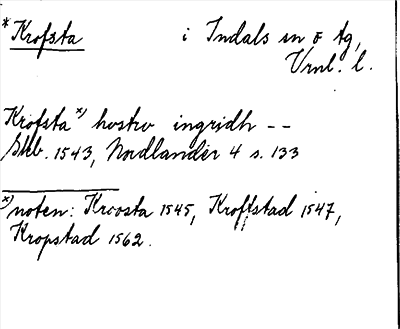 * Krofsta i Indals sn o tg,
Vrnl. l.
Krofsta *) hostro ingridh --
Skb. 1543, Nordlander 4 s. 133
*) noten: Kroosta 1545, Kroffstad 1547,
Kropstad 1562.